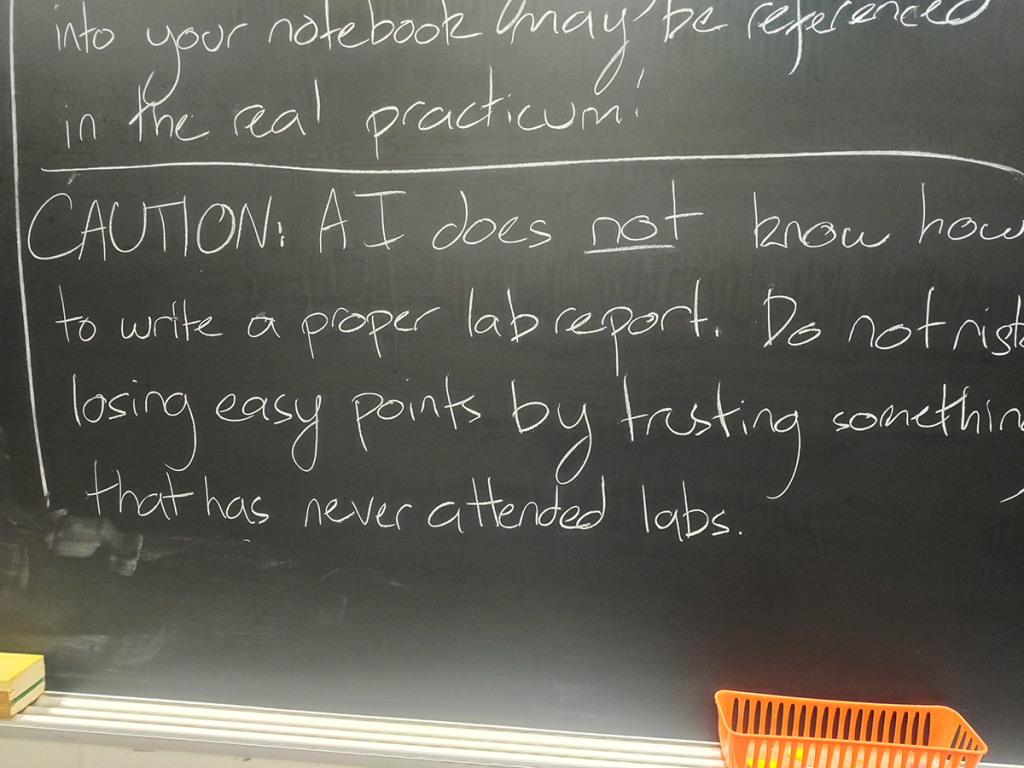 into your notebook may be referenced
in the real practicum!
CAUTION: AI does not know how
to write a proper lab report. Do not risk
losing easy points by trusting something
that has never attended labs.